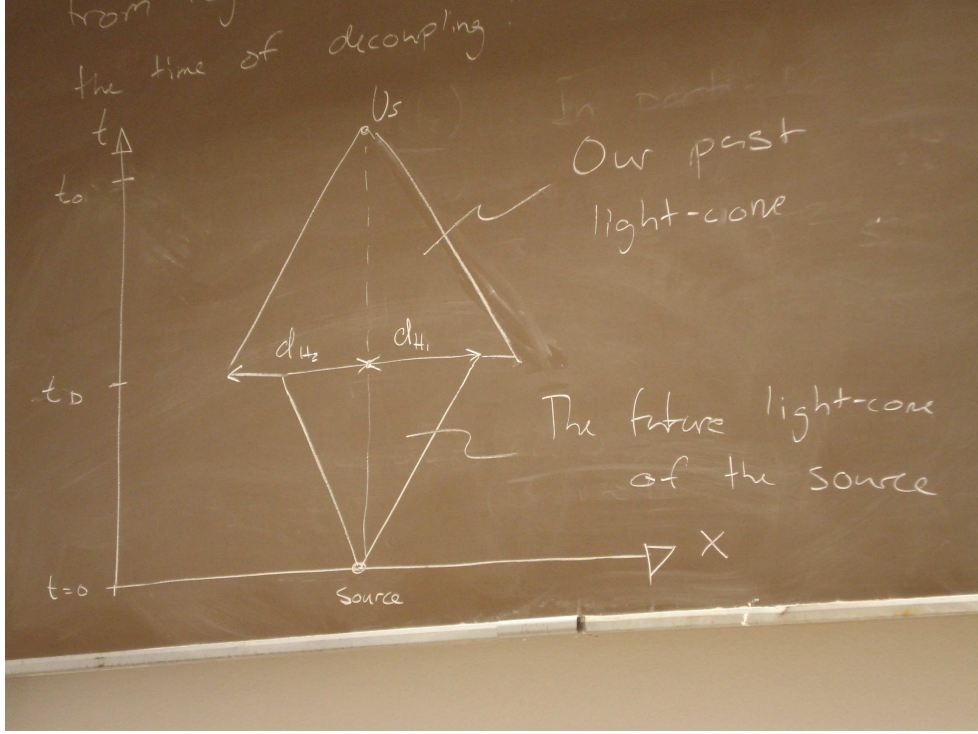 from
the time of decoupling
Us
In
t
Our past
light-cone
t₀
d_H₂ d_H₁
t_D
The future light-cone
of the source
X
t=0
Source